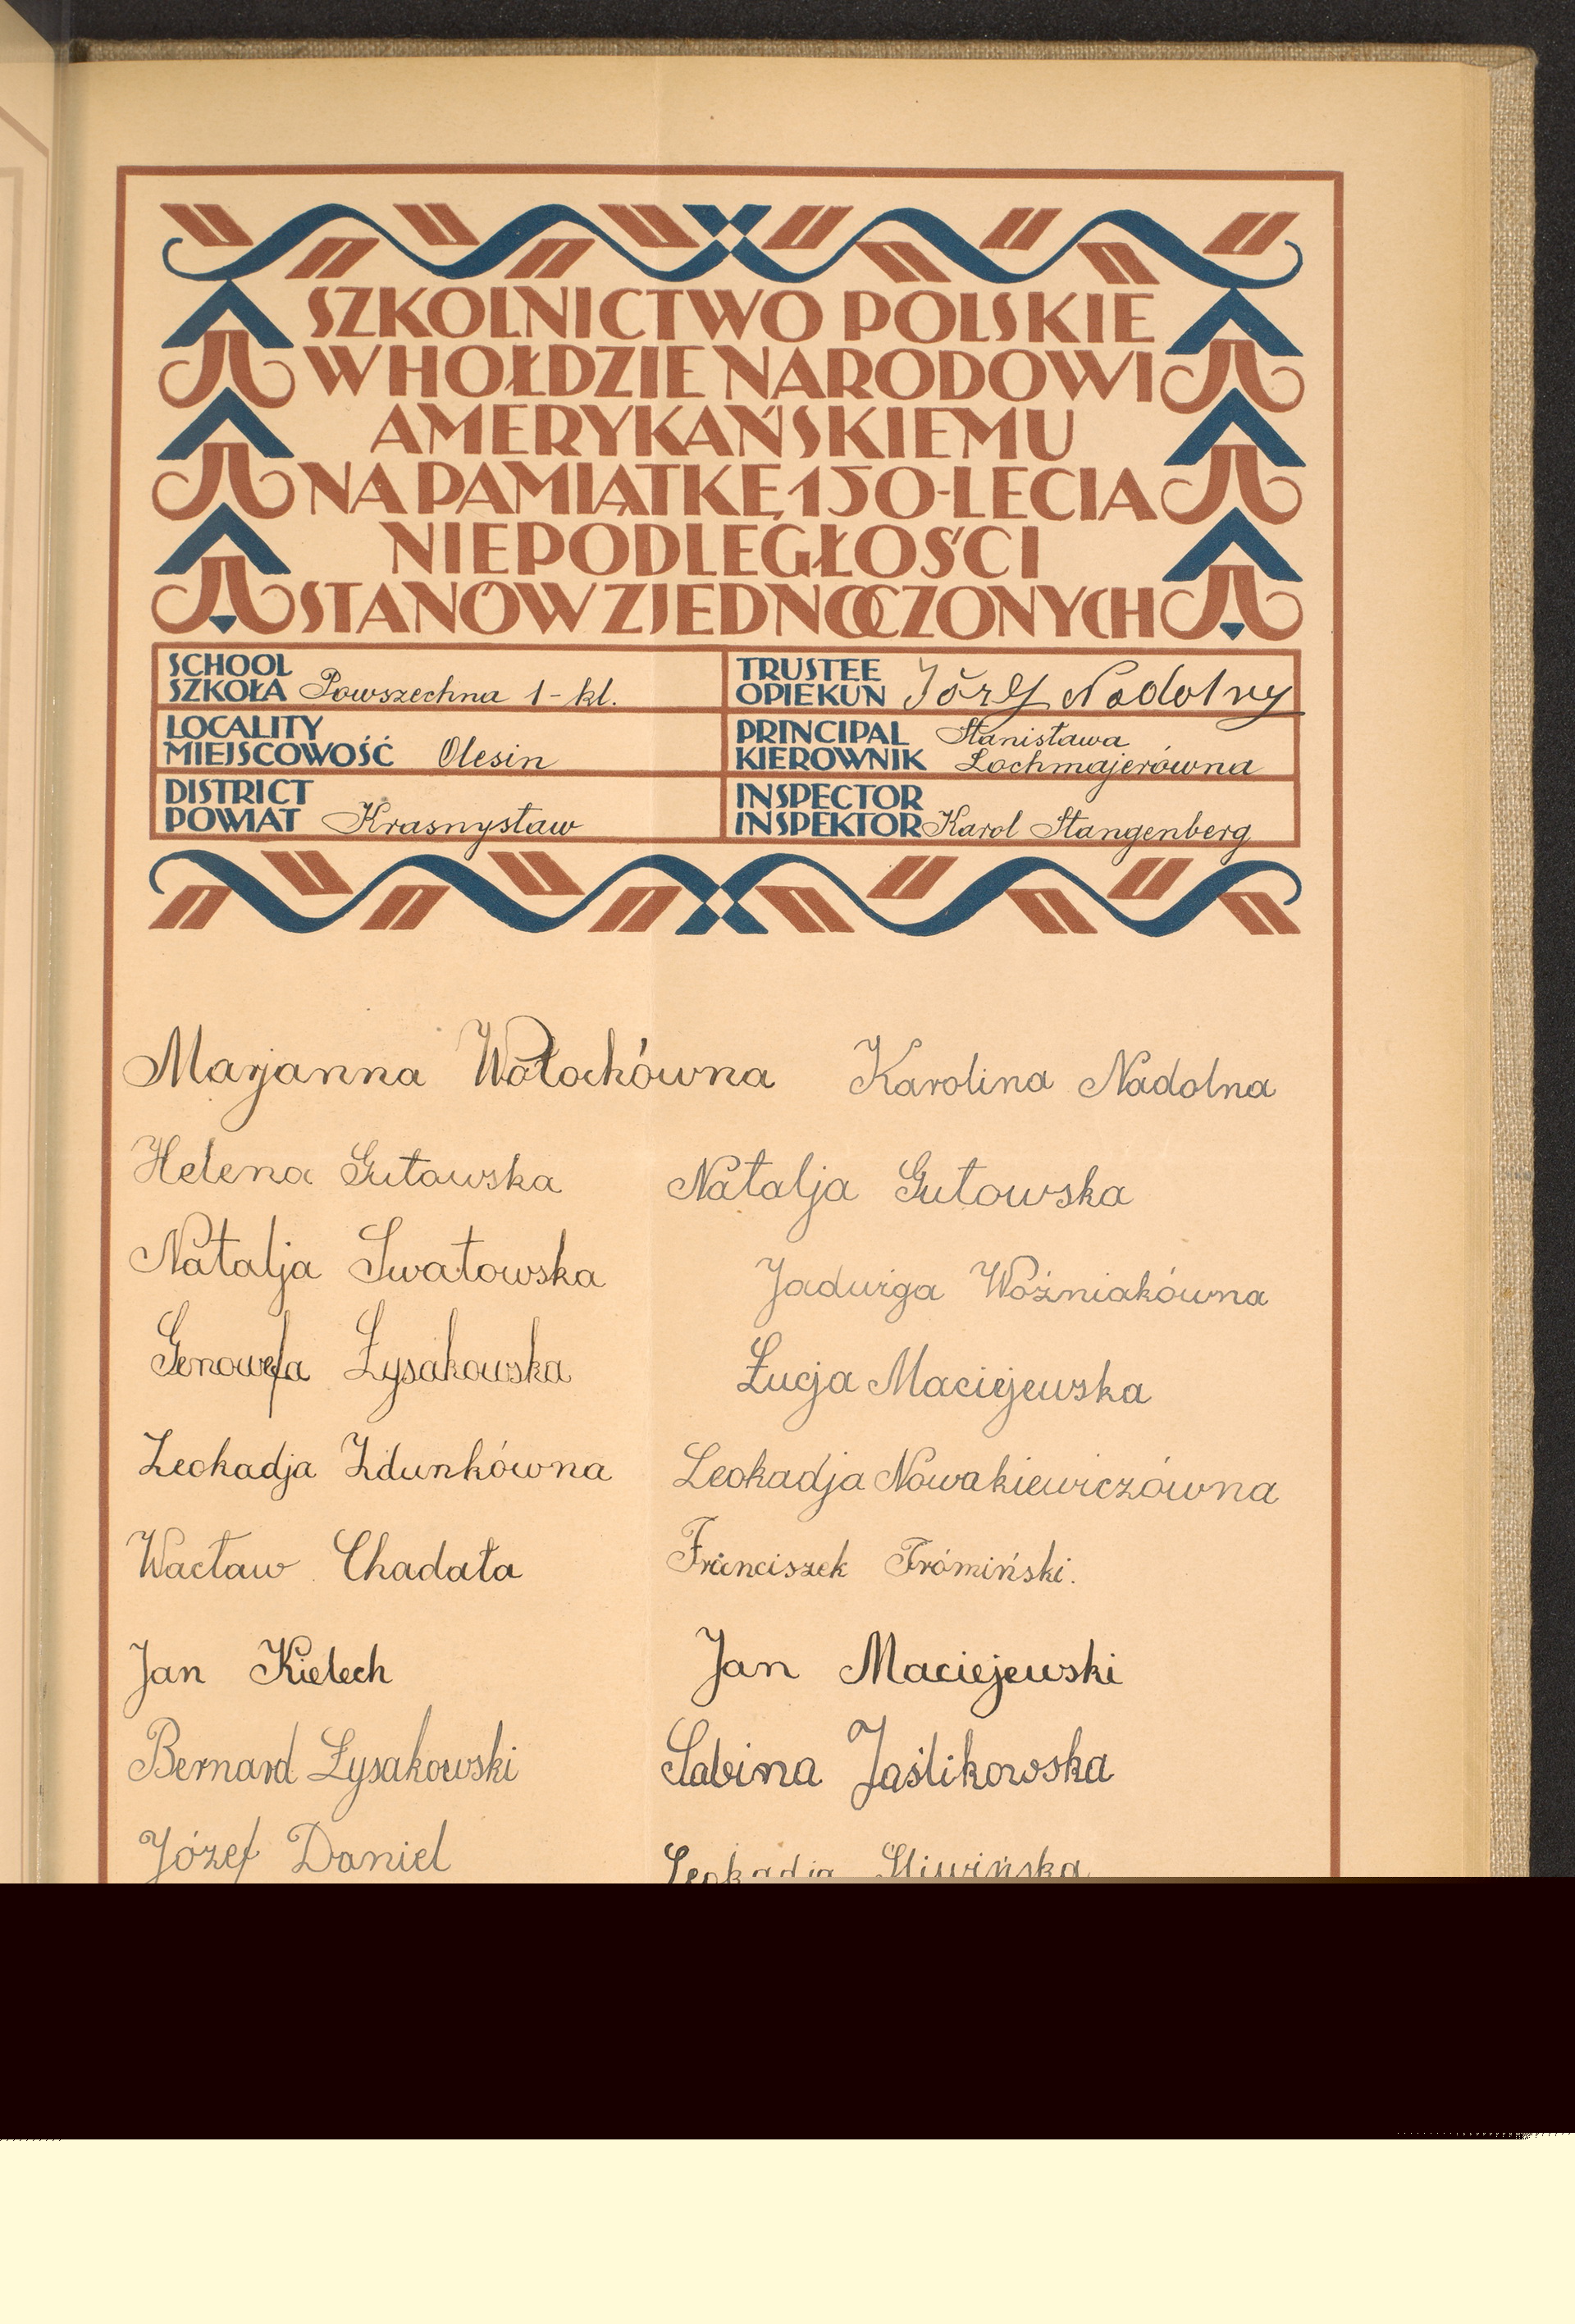 SZKOLNICTWO POLSKIE
W HOŁDZIE NARODOWI
AMERYKAŃSKIEMU
NA PAMIĄTKĘ 150-LECIA
NIEPODLEGŁOŚCI
STANÓW ZJEDNOCZONYCH
SCHOOL
SZKOŁA Powszechna 1-kl.
TRUSTEE
OPIEKUN Józef Nadolny
LOCALITY
MIEJSCOWOŚĆ Olesin
PRINCIPAL Stanisława
KIEROWNIK Lochmajerówna
DISTRICT
POWIAT Krasnystaw
INSPECTOR
INSPEKTOR Karol Stangenberg
Marjanna Wołochówna Karolina Nadolna
Helena Gutowska Natalja Gutowska
Natalja Swatowska Jadwiga Woźniakówna
Genowefa Łysakowska Łucja Maciejewska
Leokadja Zdunkówna Leokadja Nowakiewiczówna
Wacław Chadała Franciszek Frómiński.
Jan Kielech Jan Maciejewski
Bernard Łysakowski Sabina Jaślikowska
Józef Daniel Leokadja Śliwińska